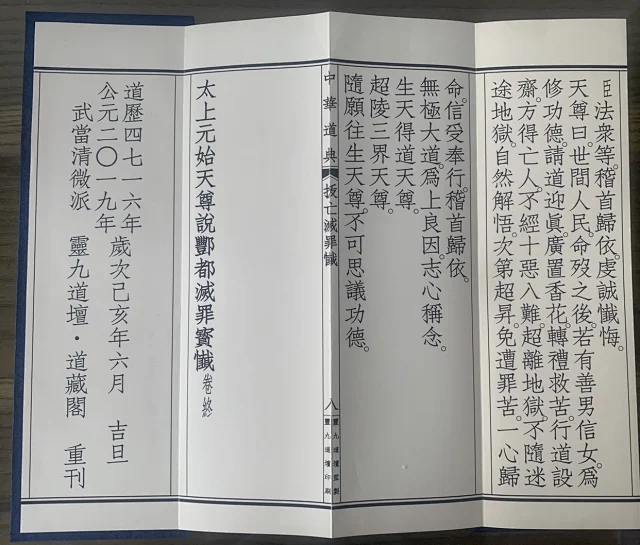 臣法眾等。稽首歸依。虔誠懺悔。
天尊曰。世間人民。命歿之後。若有善男信女。爲
修功德。請道迎眞。廣置香花。轉禮救苦。行道設
齋。方得亡人。不經十惡入難。超離地獄。不隨迷
途地獄。自然解悟。次第超昇。免遭罪苦。一心歸
命。信受奉行。稽首歸依。
無極大道。爲上良因。志心稱念。
生天得道天尊。
超陵三界天尊。
隨願往生天尊。不可思議功德。
中華道典
拔亡滅罪懺
八
靈九道壇監製
靈九道壇印刷
太上元始天尊說酆都滅罪寶懺 卷終
道歷四七一六年 歲次己亥年六月 吉旦
公元二〇一九年
武當清微派 靈九道壇·道藏閣 重刊